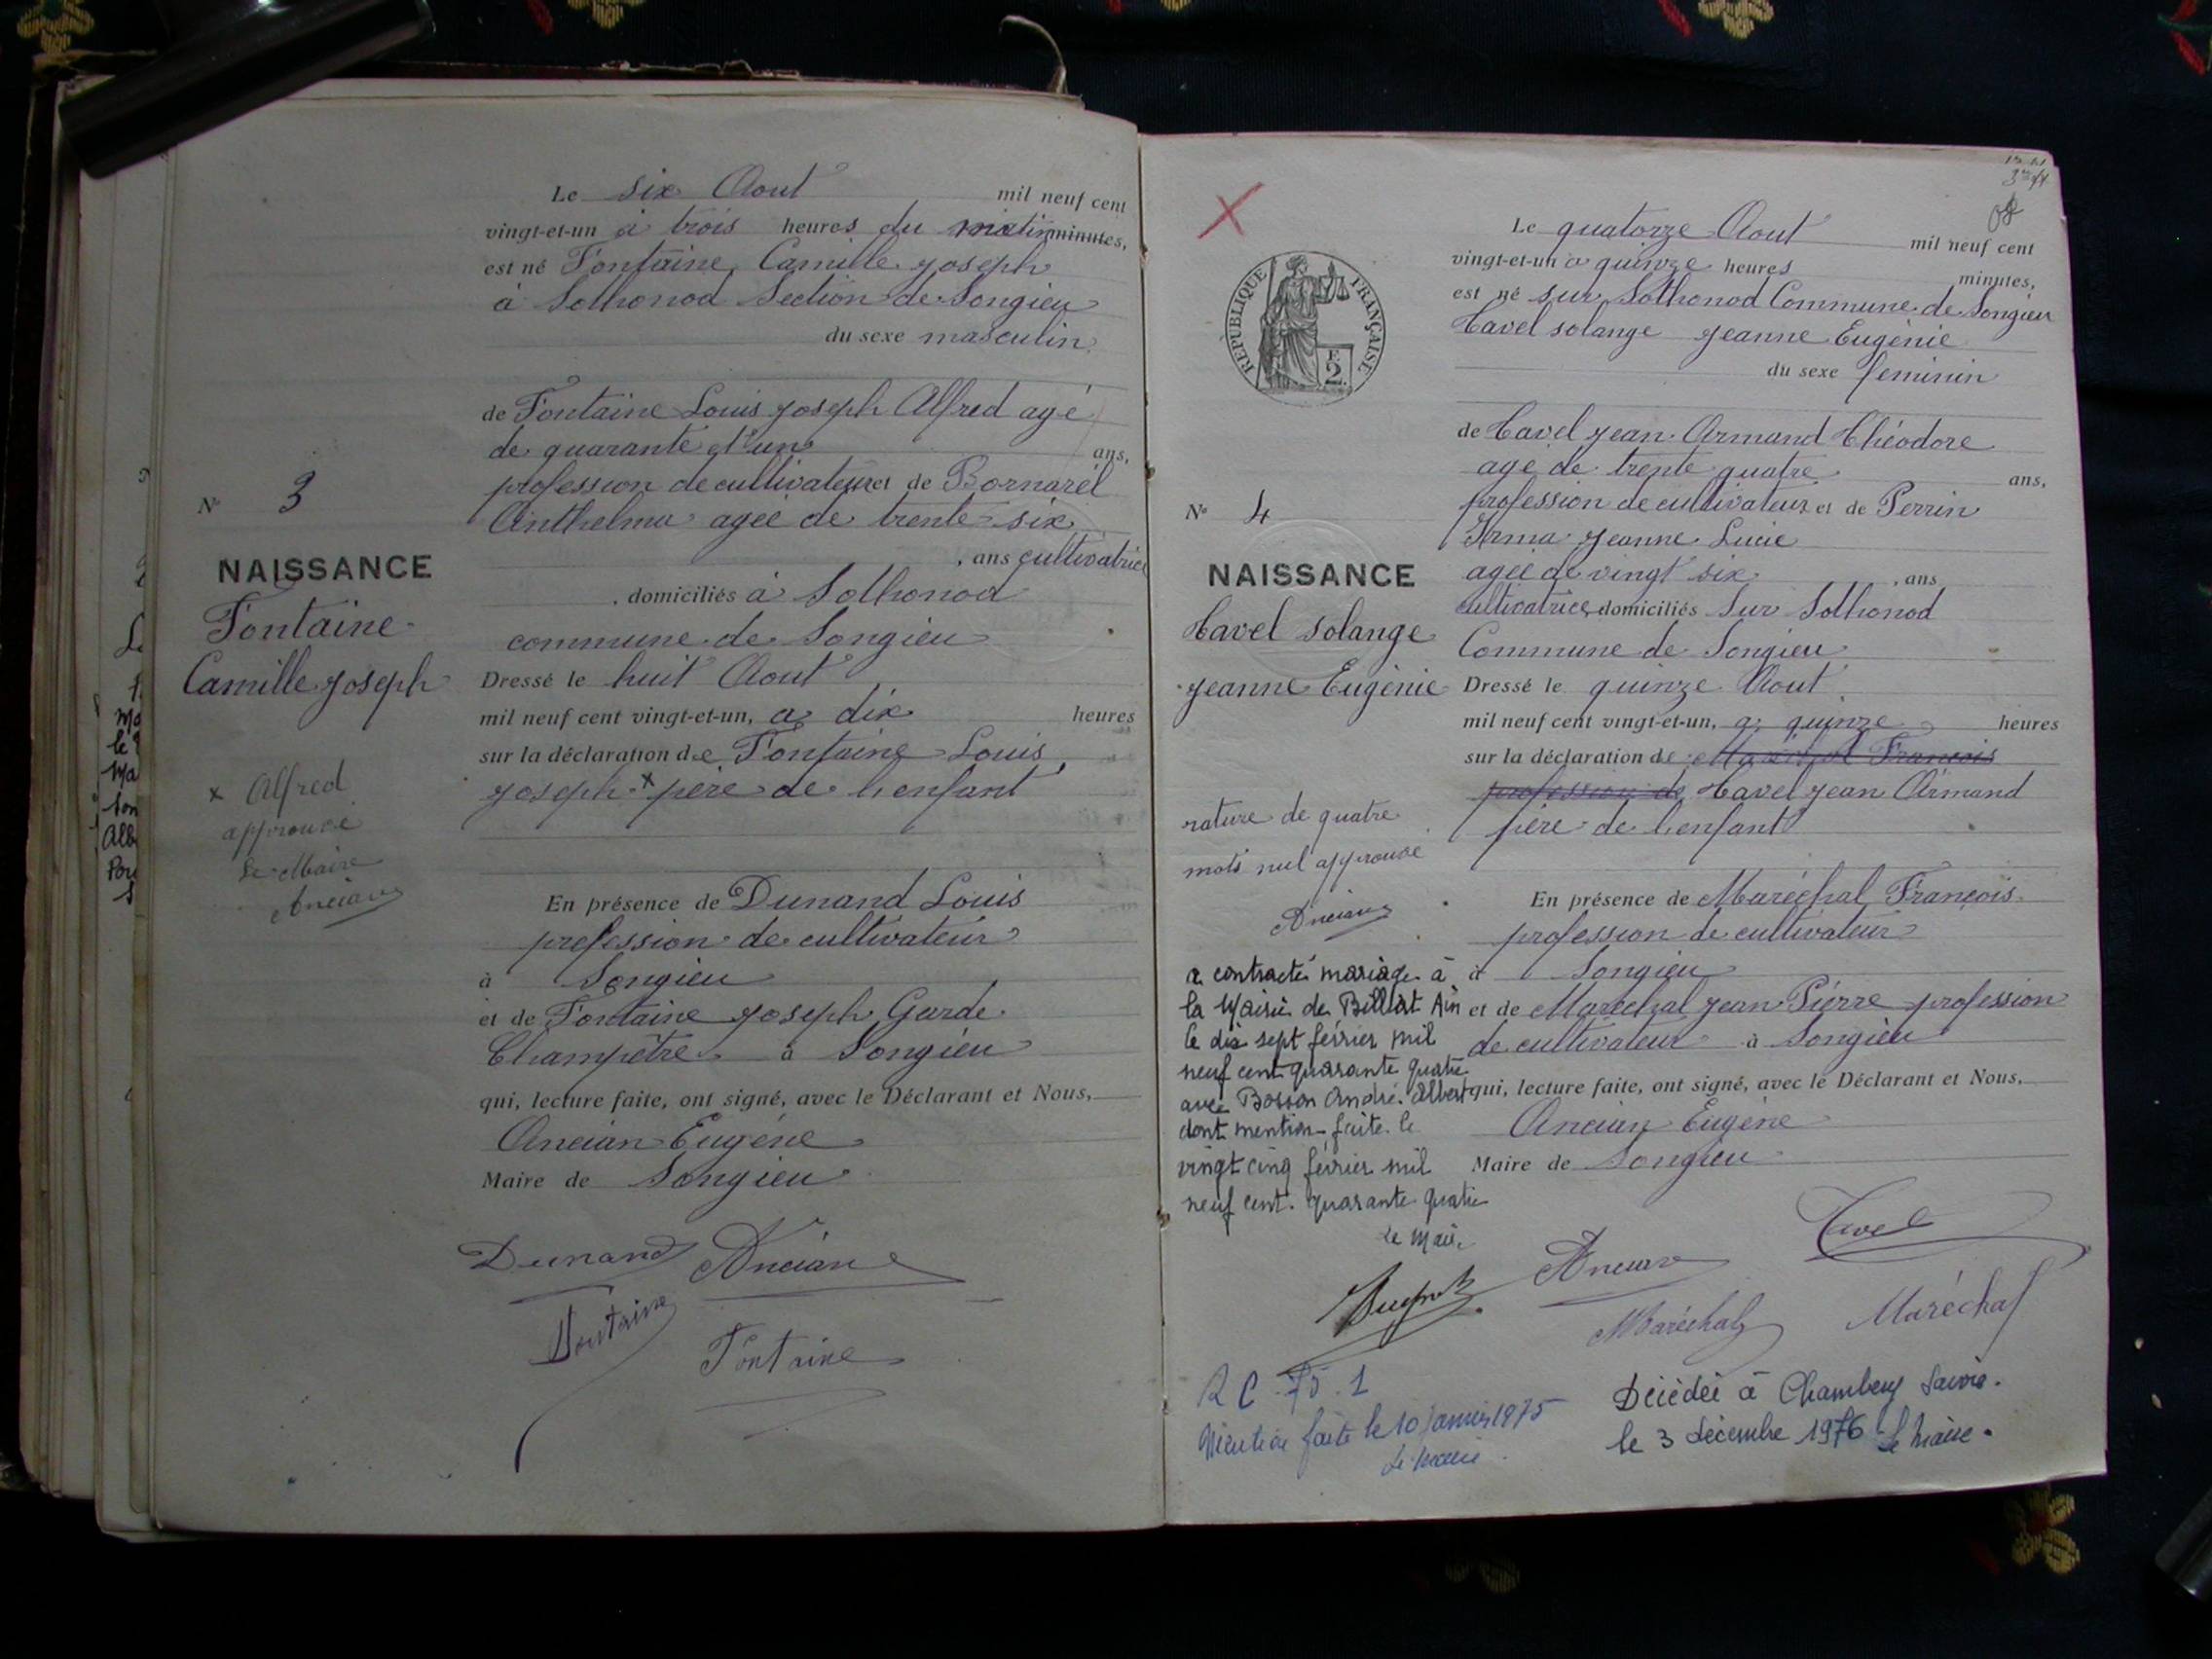 Le six Aout mil neuf cent
vingt-et-un à trois heures du matin minutes,
est né Fontaine, Camille Joseph
à Sothonod Section de Songieu
du sexe masculin
de Fontaine Louis Joseph Alfred agé
de quarante et un ans,
profession de cultivateur et de Bornarel
Anthelma agée de trente-six
, ans cultivatrice
, domiciliés à Sothonod
commune de Songieu
Dressé le huit Aout
mil neuf cent vingt-et-un, a dix heures
sur la déclaration de Fontaine Louis
Joseph x père de l'enfant
En présence de Dunand Louis
profession de cultivateur
à Songieu
et de Fontaine Joseph Garde
Champêtre à Songieu
qui, lecture faite, ont signé, avec le Déclarant et Nous,
Ancian Eugène
Maire de Songieu
Dunand Ancian
Fontaine
Fontaine
N° 3
NAISSANCE
Fontaine
Camille Joseph
x Alfred
approuvé
Le Maire
Ancian
RÉPUBLIQUE FRANÇAISE
2 F.
Le quatorze Aout mil neuf cent
vingt-et-un a quinze heures minutes,
est né sur Sothonod Commune de Songieu
Tavel Solange Jeanne Eugènie
du sexe feminin
de Tavel Jean Armand Théodore
agé de trente quatre ans,
profession de cultivateur et de Perrin
Irma Jeanne Lucie
agée de vingt six , ans
cultivatrice, domiciliés Sur Sothonod
Commune de Songieu
Dressé le quinze Aout
mil neuf cent vingt-et-un, a quinze heures
sur la déclaration de Maréchal Francois
profession de Tavel Jean Armand
père de l'enfant
En présence de Maréchal François
profession de cultivateur
à Songieu
et de Maréchal Jean Pierre profession
de cultivateur à Songieu
qui, lecture faite, ont signé, avec le Déclarant et Nous,
Ancian Eugène
Maire de Songieu
Tavel
Ancian
Maréchal Maréchal
N° 4
NAISSANCE
Tavel Solange
Jeanne Eugènie
rature de quatre
mots nul approuvé
Ancian
a contracté mariage à
la Mairie de Billiat Ain
le dix sept février mil
neuf cent quarante quatre
avec Bosson André Albert
dont mention faite le
vingt cinq février mil
neuf cent quarante quatre
Le Maire
R C 75.1
Mention faite le 10 janvier 1975
Le Maire
Décédée à Chambery Savoie.
le 3 décembre 1976 Le Maire.